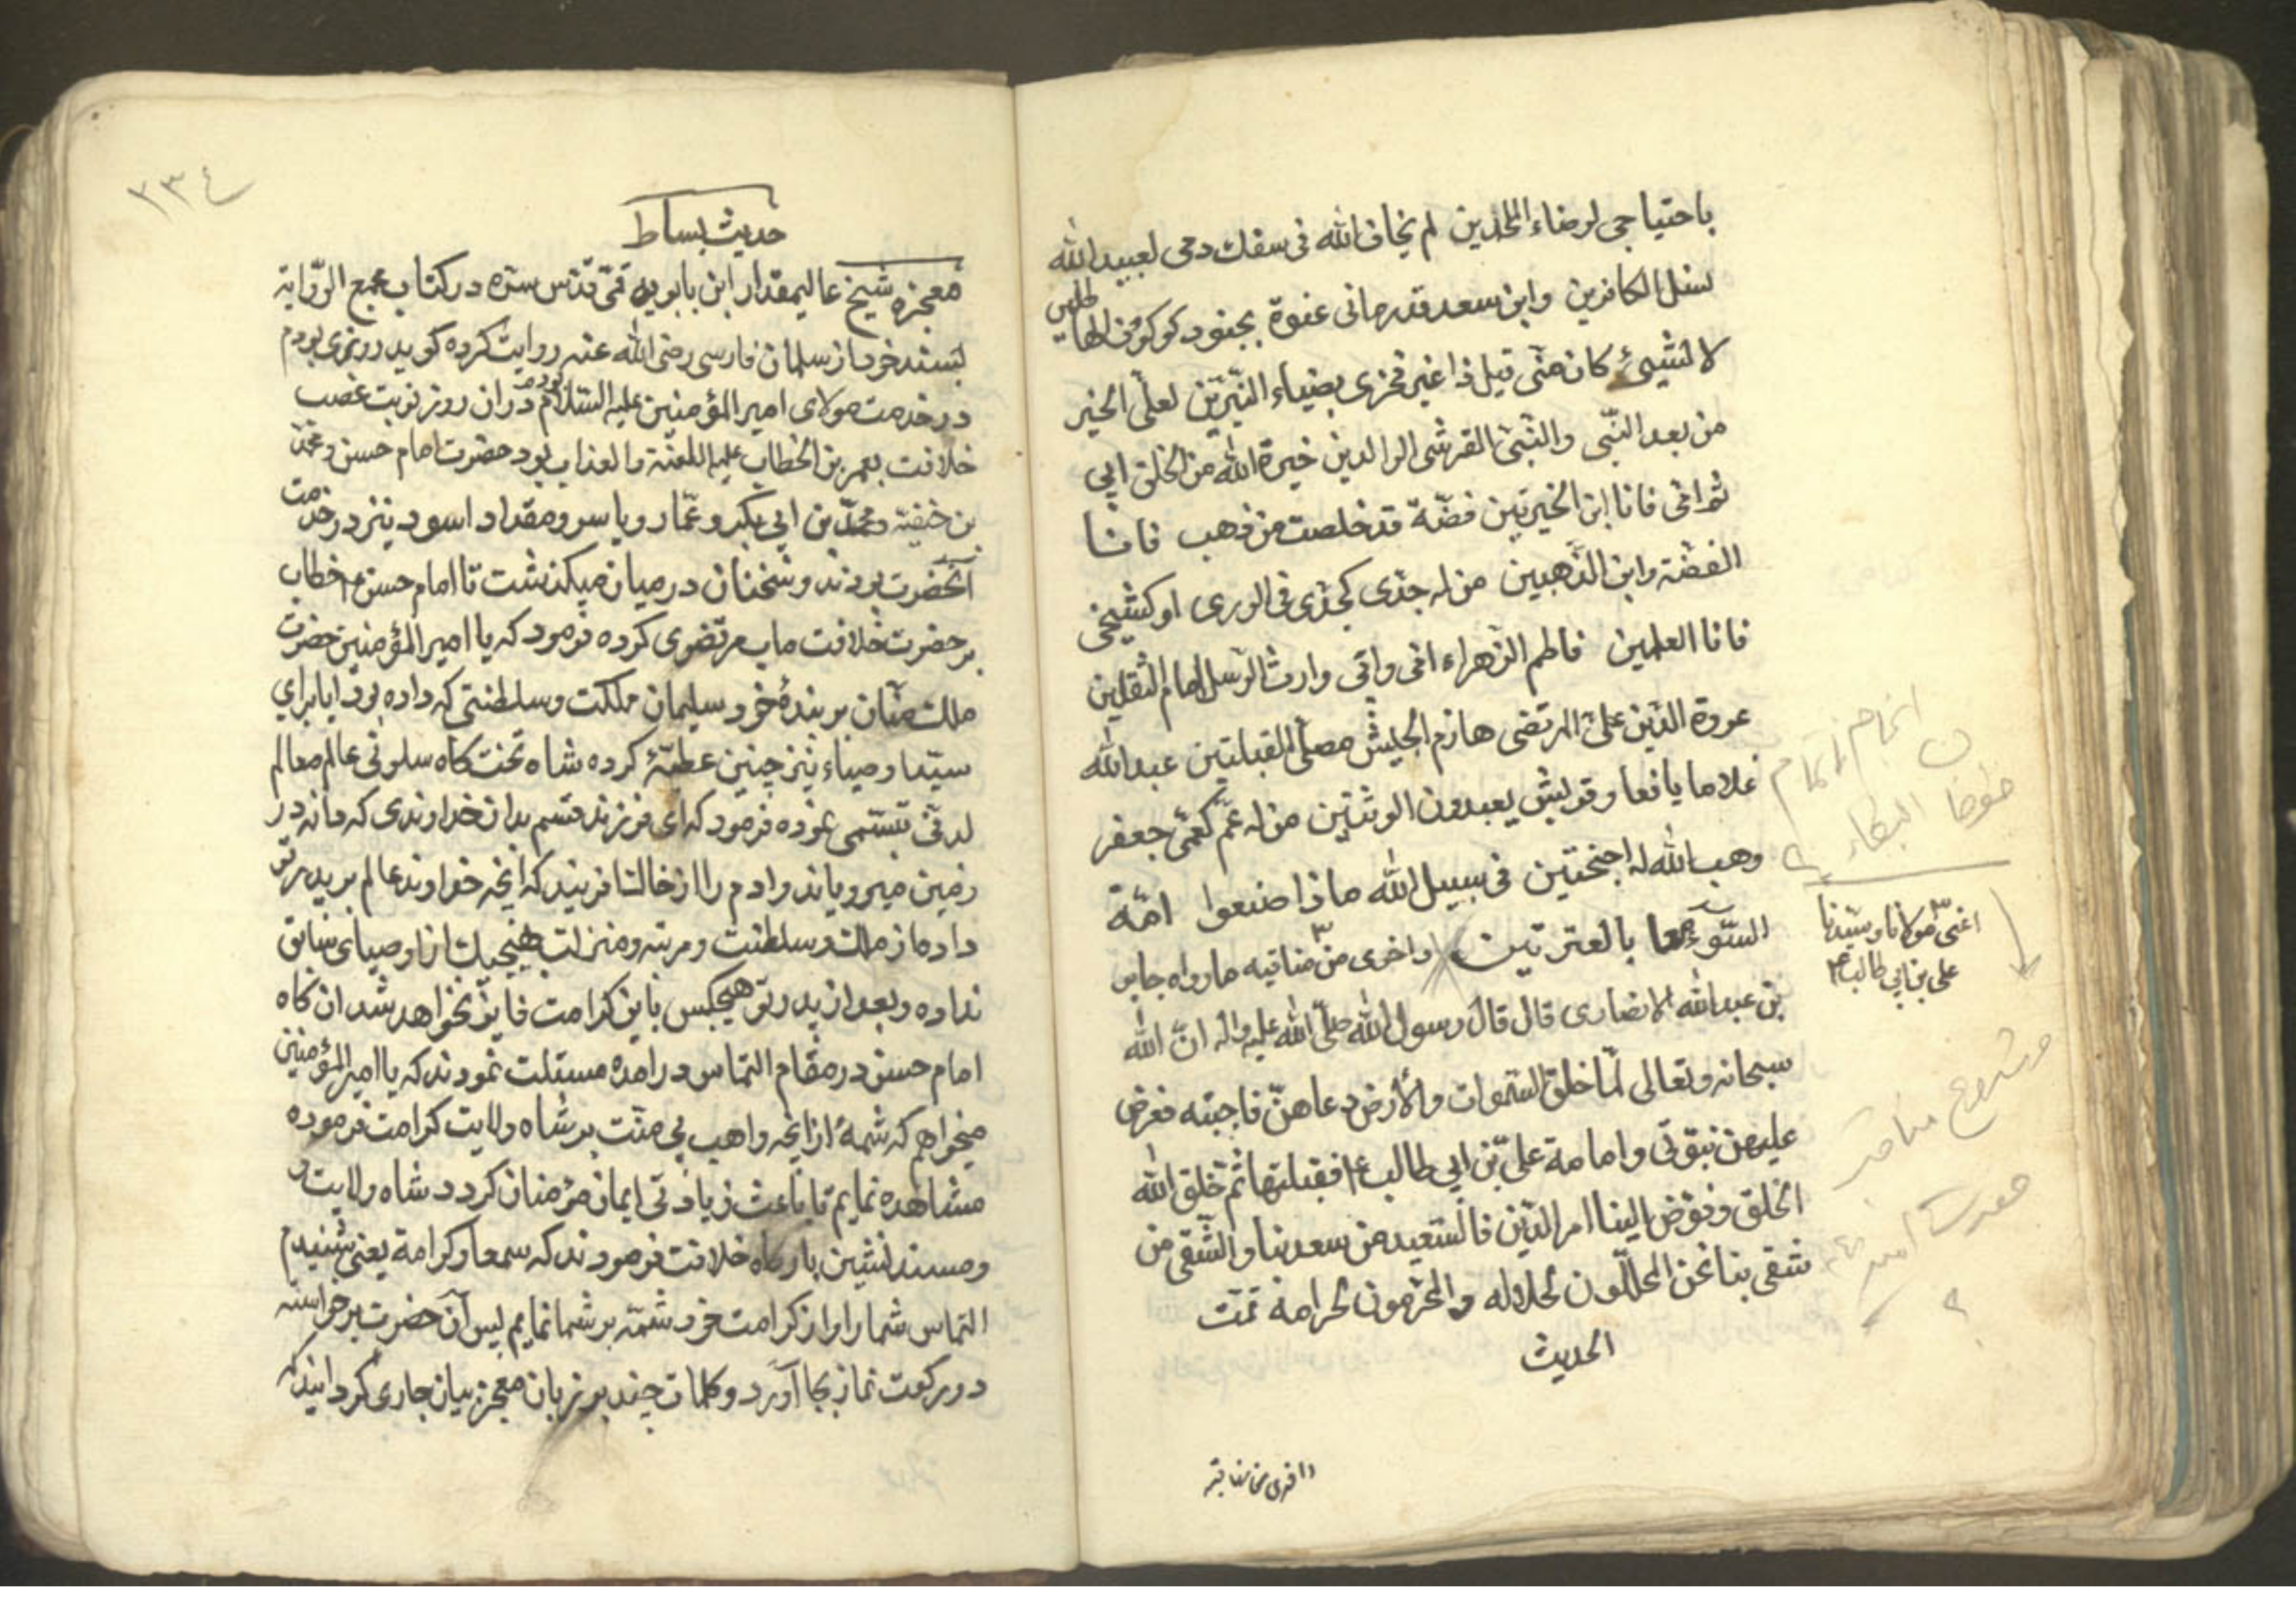 باحتیاجی لرضاء الملحدین لم یخاف الله فی سفک دمی لعبید الله
نسل الکافرین وابن سعد قد رمانی عنوة بجنود کوکوف الهاطلین
لا لشیئ کان منی قبل ذا غیر فخری بضیاء النیّرین لعلیّ الخیر
من بعد النّبی والنّبیّ القرشی الوالدین خیرة الله من الخلق ابی
ثم امّی فانا ابن الخیرتین فضّة قد خلصت من ذهب فانا
الفضّة وابن الذّهبین من له جدّی کجدّی فی الوری او کشیخی
فانا العلمین فاطم الزّهراء امّی وابی وارث الرّسل امام الثقلین
عروة الدّین علیّ المرتضی هازم الجیش مصلّی القبلتین عبد الله
غلاما یافعا وقریش یعبدون الوثنین من له عمّ کعمّی جعفر
وهب الله له اجنحتین فی سبیل الله ماذا صنعوا امّة
السّوء معا بالعترتین واخری من مناقبه ما رواه جابر
بن عبد الله الانصاری قال قال رسول الله صلّی الله علیه واله انّ الله
سبحانه وتعالی لمّا خلق السّموات والأرض دعاهنّ فاجبته فعرض
علیهن نبوّتی وامامة علیّ بن ابی طالب ع فقبلتها ثم خلق الله
الخلق وفوّض الینا امر الدّین فالسّعید من سعد بنا والشّقی من
شقی بنا نحن المحلّلون لحلاله والمحرّمون لحرامه تمّت
الحدیث
اعنی مولانا وسیّدنا
علی بن ابی طالب ع
واخری من مناقبه
٢٣٤
حدیث بساط
معجزه شیخ عالیمقدار ابن بابویه قمّی قدّس سرّه در کتاب مجمع الرّوایة
بسند خود از سلمان فارسی رضی الله عنه روایت کرده کوید روزی بودم
در خدمت مولای امیر المؤمنین علیه السّلام در ان روز نوبت غصب
خلافت بعمر بن الخطاب علیه اللعنة والعذاب بود حضرت امام حسن و محمّد
بن حنفیّه و محمّد بن ابی بکر و عمّار و یاسر و مقداد اسود نیز در خدمت
آنحضرت بودند و سخنان در میان میکذشت تا امام حسن ع خطاب
بر حضرت خلافت ماب مرتضوی کرده فرمود که یا امیر المؤمنین حضرت
ملک منّان بر بندهٔ خود سلیمان مملکت و سلطنتی که داده بود ایا برای
سیّد اوصیاء نیز چنین عطیّهٔ کرده شاه تخت کاه سلونی عالم معالم
لدنّی تبسّمی نموده فرمود که ای فرزند قسم بدان خداوندی که دانه در
زمین میرویاند و ادم را از خاک افریند که انچه خداوند عالم بر پدرتو
داده از ملک و سلطنت و مرتبه و منزلت هیچیک از اوصیای سابق
نداده و بعد از پدر تو هیچکس باین کرامت فایز نخواهد شد ان کاه
امام حسن در مقام التماس درامده مسئلت نمودند که یا امیر المؤمنین
میخواهم که شمهٔ از انچه واهب بی منّت بر شاه ولایت کرامت فرموده
مشاهده نمایم تا باعث زیادتی ایمان مؤمنان کردد شاه ولایت
و مسند نشین بارکاه خلافت فرمودند که سمعا و کرامة یعنی شنیدم
التماس شما را و از کرامت خود شمّه بر شما نمایم پس آن حضرت برخواسته
دو رکعت نماز بجا آورد و کلمات چند بر زبان معجز بیان جاری کردانید که